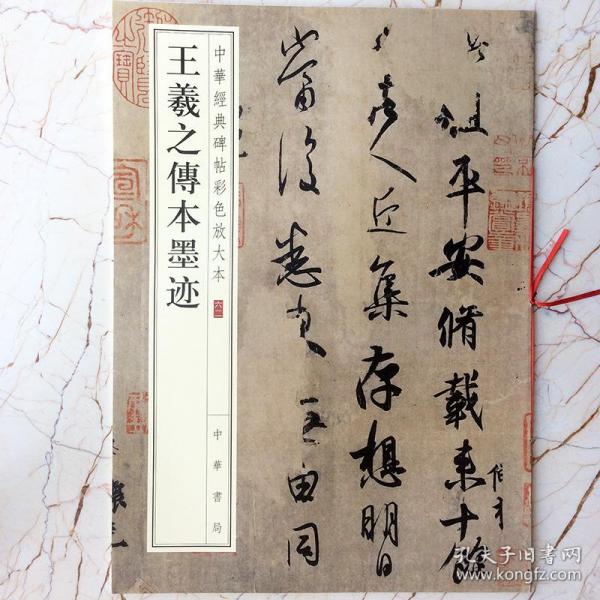 王羲之傳本墨迹
中華經典碑帖彩色放大本
六二
中華書局
此粗平安脩載来十餘
日諸人近集存想明日
當復悉来無由同
孔夫子旧书网
www.kongfz.com